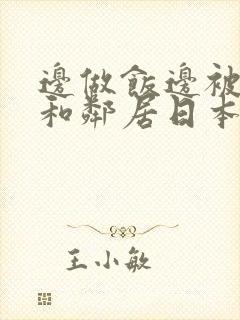 邊做飯邊被
和鄰居日本
王小敏